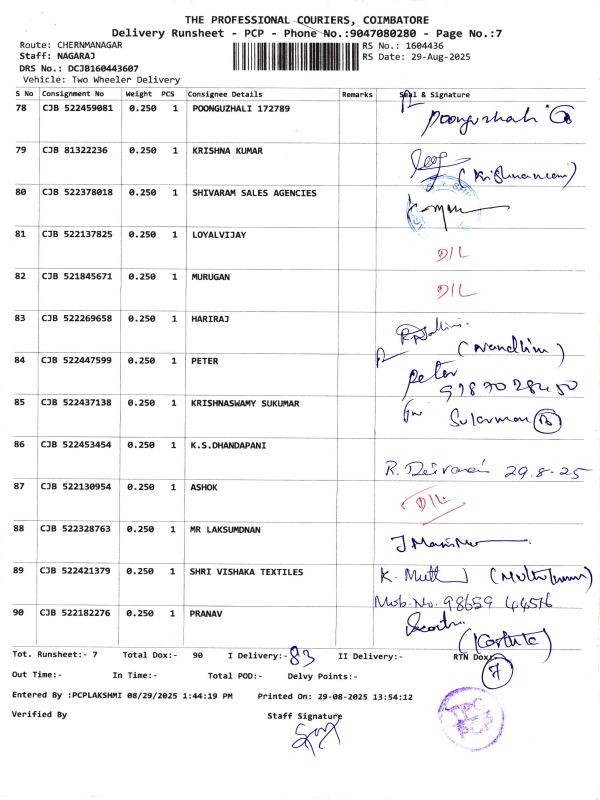 THE PROFESSIONAL COURIERS, COIMBATORE
Delivery Runsheet - PCP - Phone No.:9047080280 - Page No.:7
Route: CHERNMANAGAR RS No.: 1604436
Staff: NAGARAJ RS Date: 29-Aug-2025
DRS No.: DCJB160443607
Vehicle: Two Wheeler Delivery
S No Consignment No Weight PCS Consignee Details Remarks Seal & Signature
78 CJB 522459081 0.250 1 POONGUZHALI 172789 Poonguzhali
79 CJB 81322236 0.250 1 KRISHNA KUMAR
80 CJB 522378018 0.250 1 SHIVARAM SALES AGENCIES
81 CJB 522137825 0.250 1 LOYALVIJAY D/L
82 CJB 521845671 0.250 1 MURUGAN D/L
83 CJB 522269658 0.250 1 HARIRAJ (Nandhini)
84 CJB 522447599 0.250 1 PETER Peter
9787028450
85 CJB 522437138 0.250 1 KRISHNASWAMY SUKUMAR
86 CJB 522453454 0.250 1 K.S.DHANDAPANI
R. 29.8.25
87 CJB 522130954 0.250 1 ASHOK D/L
88 CJB 522328763 0.250 1 MR LAKSUMDNAN
89 CJB 522421379 0.250 1 SHRI VISHAKA TEXTILES K. (Muthukumar)
Mob.No. 98659 44516
90 CJB 522182276 0.250 1 PRANAV
Tot. Runsheet:- 7 Total Dox:- 90 I Delivery:- 83 II Delivery:- RTN Dox:- 7
Out Time:- In Time:- Total POD:- Delvy Points:-
Entered By :PCPLAKSHMI 08/29/2025 1:44:19 PM Printed On: 29-08-2025 13:54:12
Verified By Staff Signature